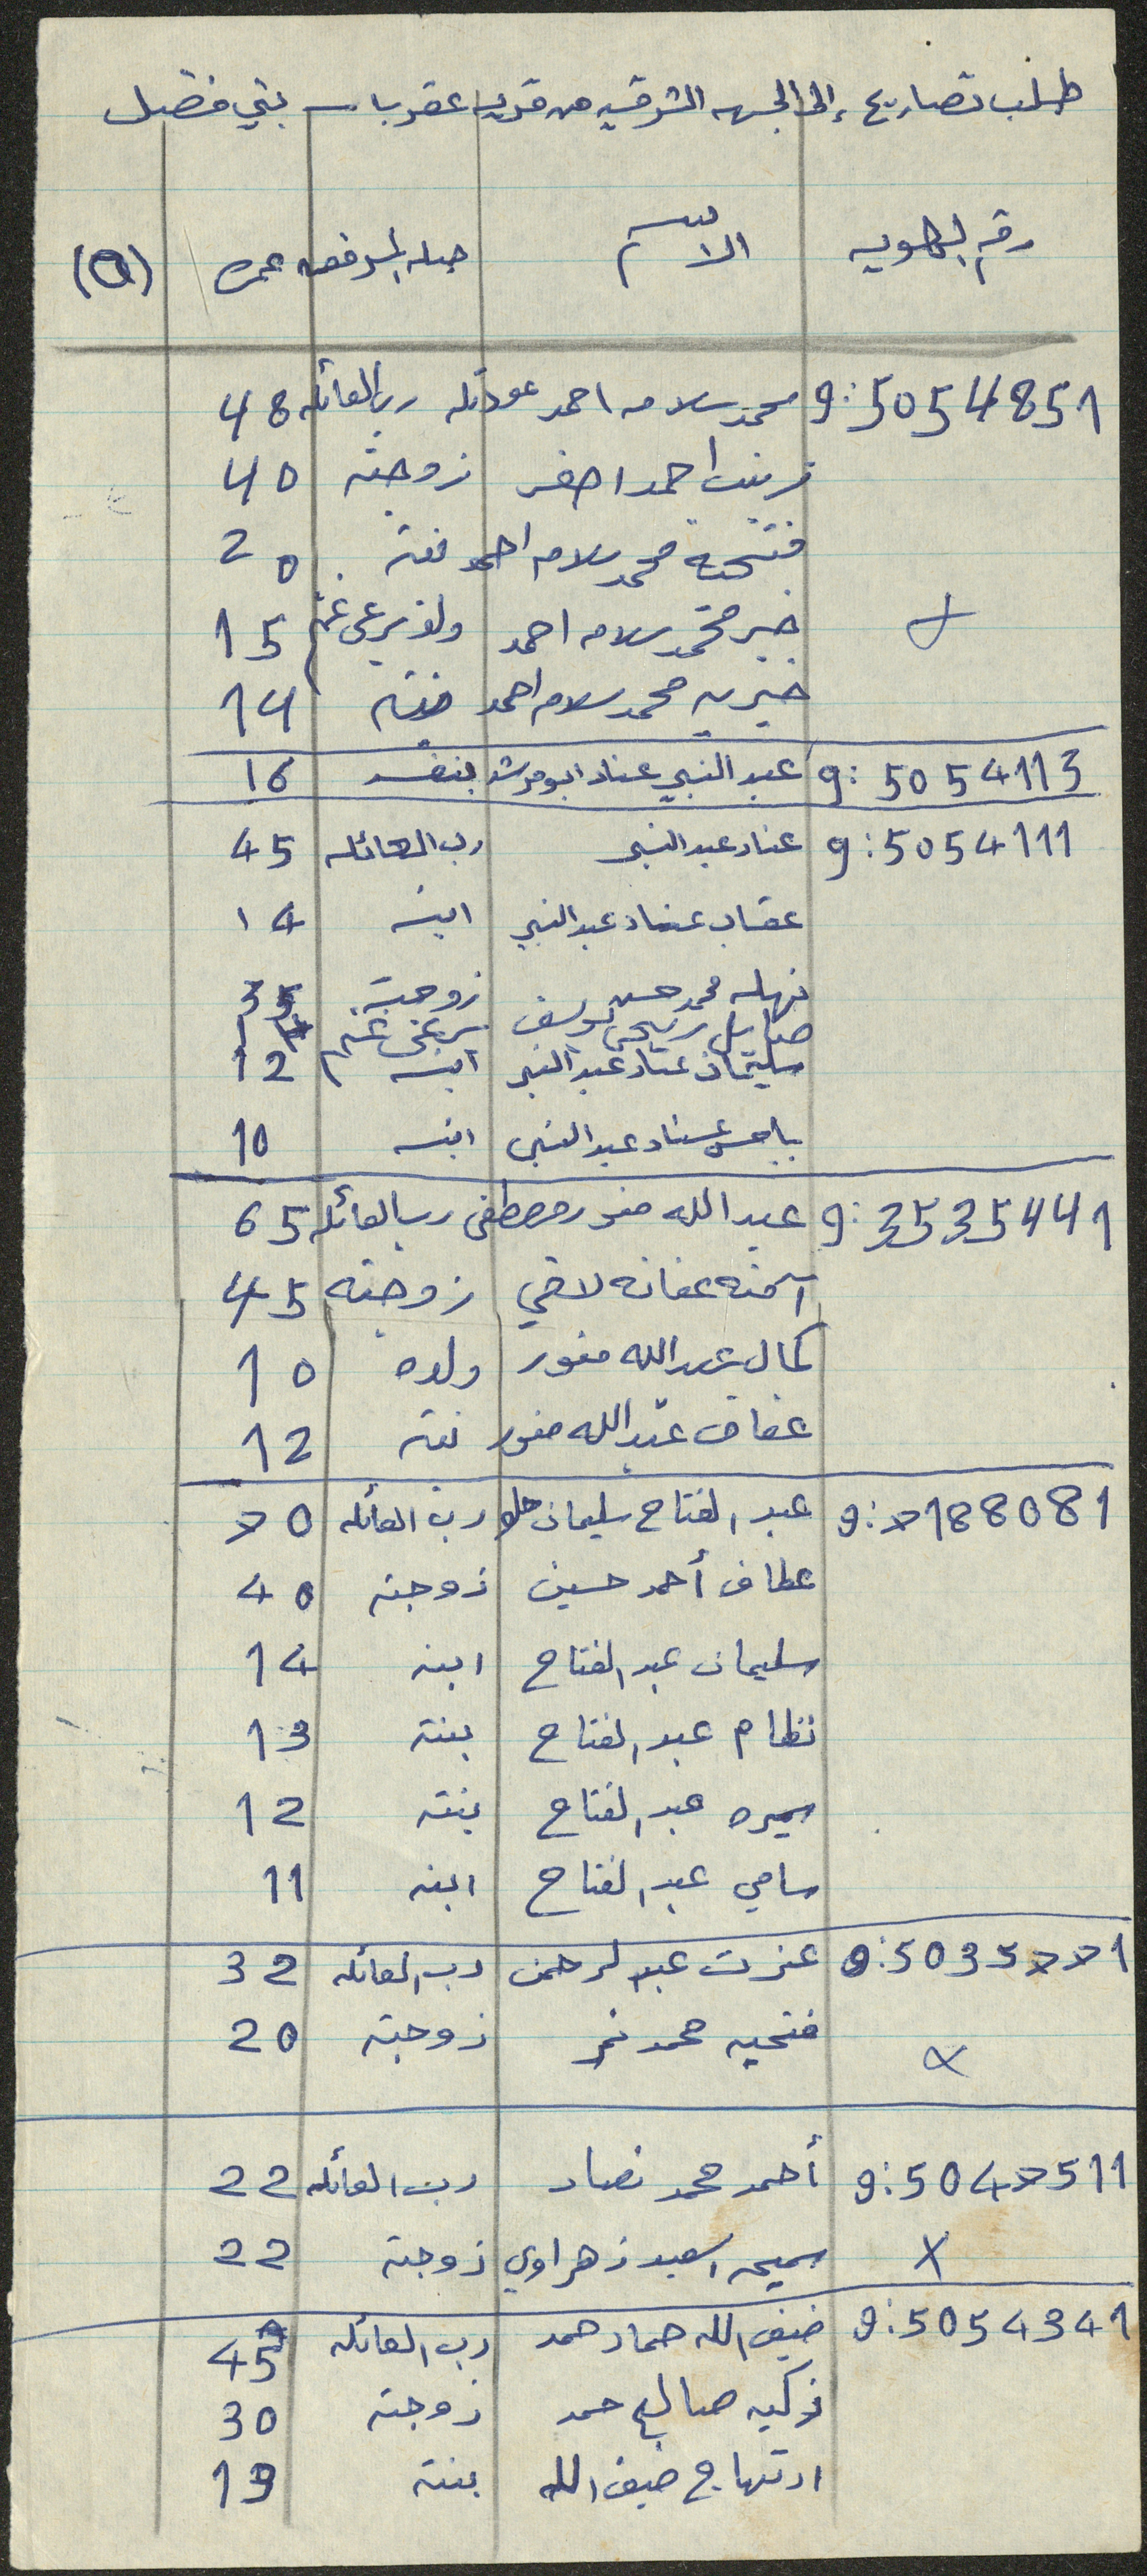 طلب تصاريح إلى الجهه الشرقيه من قريه عقربا - بني فضل
رقم الهويه الاسم صله المرافقه عمره (٥)
9:5054851 محمد سلامه احمد عودالله رب العائله 48
زينب احمد اصفر زوجته 40
فتحيه محمد سلامه احمد بنته 20
خير محمد سلامه احمد ولد يرعى غنم 15
خيريه محمد سلامه احمد بنته 14
9:5054113 عبد النبي عناد ابو مرشد بنفسه 16
9:5054111 عناد عبد النبي رب العائله 45
عقاب عناد عبد النبي ابنه 14
نهله محمد حسن زوجته 35
صايل يوسف يرعى غنم
سليمان عناد عبد النبي ابنه 12
عناد عبد النبي ابنه 10
9:3535441 عبد الله منور مصطفى رب العائله 65
آمنه لافي زوجته 45
كمال عبد الله منور ولده 10
عفاف عبد الله منور بنته 12
9:7188081 عبد الفتاح سليمان رب العائله 70
عطاف أحمد حسين زوجته 40
سليمان عبد الفتاح ابنه 14
نظام عبد الفتاح بنته 13
سميره عبد الفتاح بنته 12
سامي عبد الفتاح ابنه 11
9:5035771 عزت عبد الرحمن رب العائله 32
فتحيه محمد نمر زوجته 20
9:5047511 أحمد محمد نصار رب العائله 22
X سميحه اسعيد زهراوي زوجته 22
9:5054341 ضيف الله حماد حمد رب العائله 45
زكيه صالح حمد زوجته 30
ابتهاج ضيف الله بنته 13